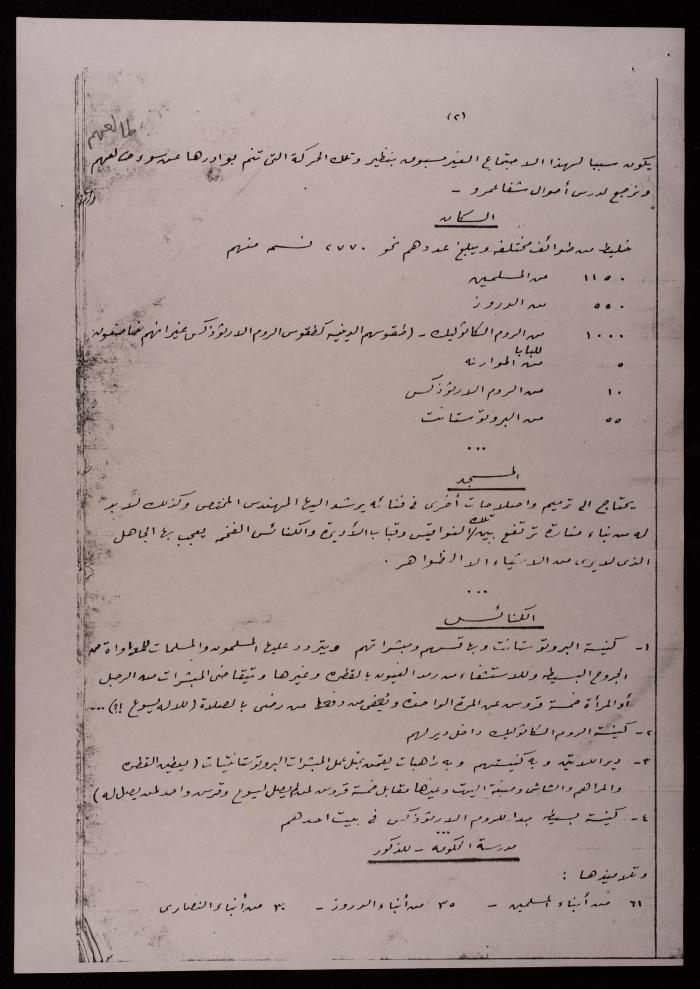 (٢)
طالعهم
يكون سببا لهذا الاجتماع الغير مسبوق بنظير وتلك الحركة التي تنم بوادرها عن سوء طالعهم
ونرجع لدرس أحوال شفاعمرو -
السكان
خليط من طوائف مختلفه ويبلغ عددهم نحو ٢٧٧٠ نسمه منهم
١١٥٠ من المسلمين
٥٥٠ من الدروز
١٠٠٠ من الروم الكاثوليك - (طقوسهم الدينيه كطقوس الروم الارثوذكس غير انهم خاضعون
للبابا
٥ من الموارنه
١٠ من الروم الارثوذكس
٥٥ من البروتوستانت
...
المسجد
يحتاج الى ترميم واصلاحات أخرى في فنائه يرشد اليها المهندس المختص وكذلك لا بد
له من بناء منارة ترتفع بين تلك النواقيس وقباب الأديرة والكنائس الفخمه يعجب بها الجاهل
الذى لا يرى من الاشياء الا الظواهر .
...
الكنائس
١- كنيسة البروتوستانت وبها قسهم ومبشراتهم ويتردد عليها المسلمون والمسلمات للمداواة من
الجروح البسيطه وللاستشفاء من رمد العيون بالقطره وغيرها وتتقاضى المبشرات من الرجل
أو المرأة خمسة قروش عن المرة الواحدة ويعفى من دفعها من رضى بالصلاة (للاله يسوع !!) ...
٢- كنيسة الروم الكاثوليك داخل دير لهم
٣- دير اللاتين وبه كنيستهم وبه راهبات يقمن بمثل عمل المبشرات البروتوستانتيات (يعطين القطره
والمراهم والشاش وصبغة اليود وغيرها مقابل خمسة قروش لمن لا يصل ليسوع وقرش واحد لمن يصل له)
٤- كنيسة بسيطه جدا للروم الارثوذكس في بيت احدهم
...
مدرسة الحكومه - للذكور
وتلاميذها :
٦١ من أبناء المسلمين - ٣٥ من أبناء الدروز - ٣٠ من أبناء النصارى